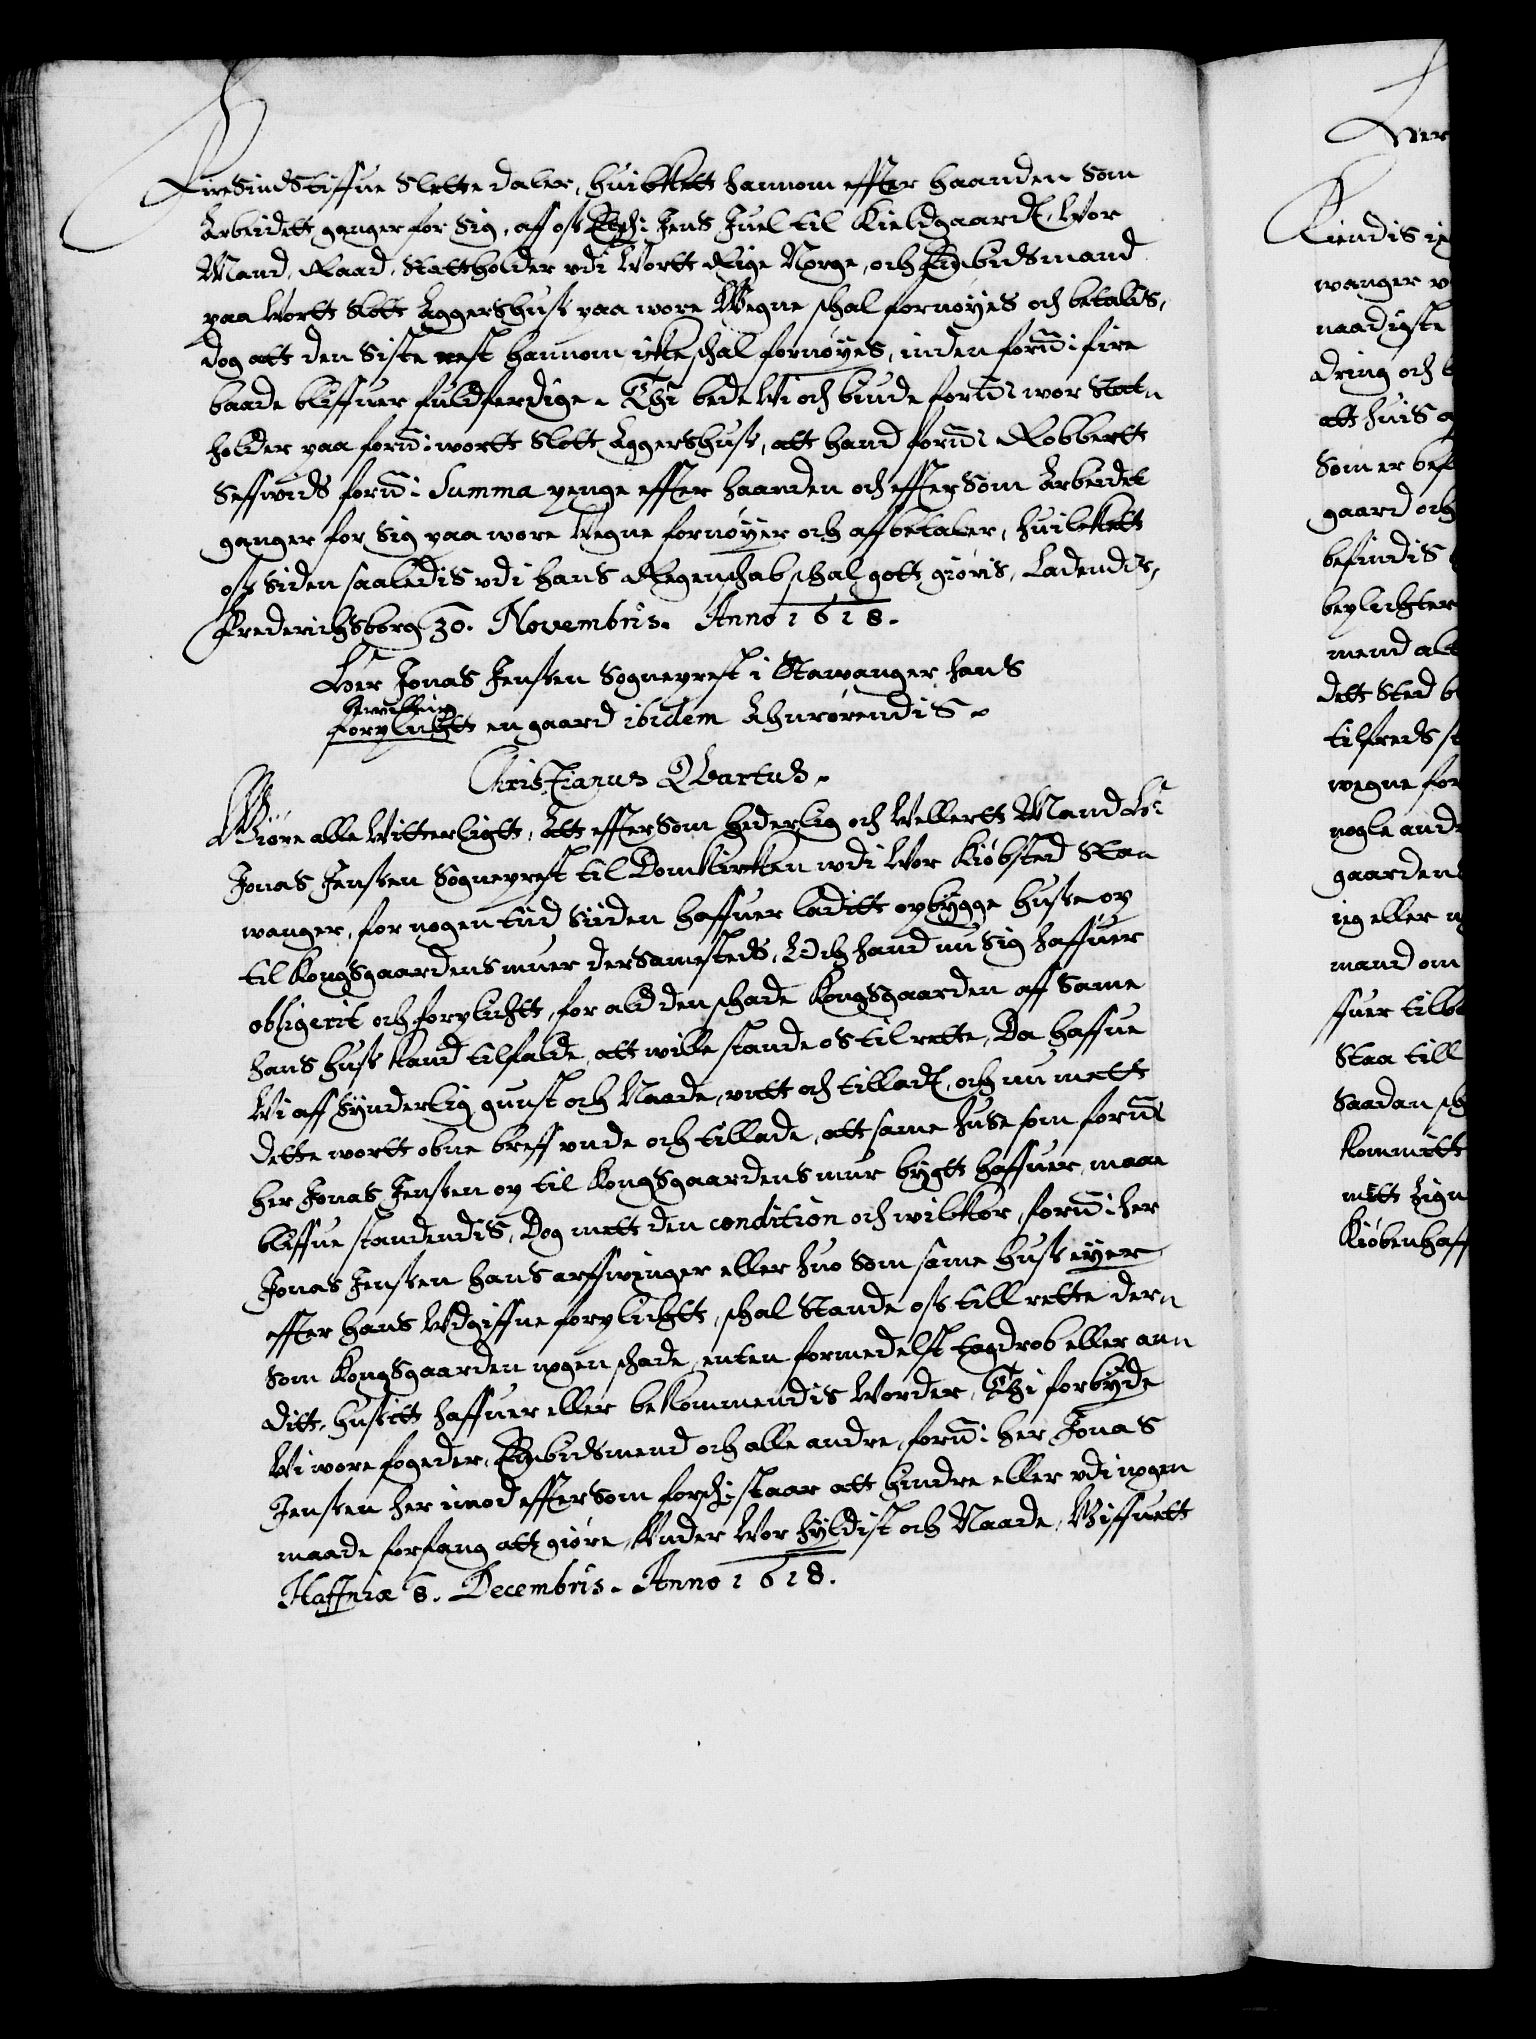 Firesindstiffue Slette daler, huilkett hannom effter haanden som
Arbeidett ganger for sig, aff oss Elsch: Jens Juel til Kieldgaard, Wor
Mand, Raad, Stattholder vdi Wortt Rige Norge, och Embidsmand
paa Wortt Slott Aggershuss paa wore Wegne schal fornøyes och betalis,
dog att den Siste rest hannom icke schal fornøyes, inden forn: fire
baade bliffuer fuldferdige. Thi bede Wi och biude forn: wor Stat-
holder paa forn: wortt Slott Aggershuss, att hand forn: Robbertt
forn: Summa penge effter haanden och effter som Arbeidet
ganger for sig paa wore Wegne fornøyer och aff betaler, huilckett
oss siden saaledis vdi hans Regenschab schal gott giøris, Ladendis,
Frederichsborg 30. Novembris. Anno 1618.
Her Jonas Jenssen Sogneprest i Stawanger hans
bewilling
forplichtt en gaard ibidem Ahnrørendis.
Christianus Qvartus.
Giøre alle Witterligtt, Att effter som hederlig och Wellertt Mand Hr
Jonas Jenssen Sogneprest til Domkircken wdi Wor Kiøbsted Sta-
wanger, for nogen tiid siiden haffuer laditt opbygge husse op
til Kongsgaardens muer dersamesteds, Och hand nu sig haffuer
obligerit och forplichtt, for ald den schade Kongsgaarden aff same
hans huss kand tilfalde, att wille stande os til rette, Da haffue
Wi aff synderlig gunst och Naade, vntt och tilladt, och nu mett
dette wortt obne breff vnde och tillade, att same Huse som forn:
her Jonas Jenssen op til Kongsgaardens mur bygtt haffuer, maae
bliffue standendis, Dog mett den condition och wilkor, forn: her
Jonas Jenssen hans arffwinger eller huo som same huss eyer
effter hans Vdgiffne forplichtt, schal Stande oss till rette der-
som Kongsgaarden nogen schade, enten formedelst tagdrob eller an-
ditt, hussitt haffuer eller bekommendis Worder, Thi forbyde
Wi wore fogeder, Embidsmend och alle andre, forn: her Jonas
Jenssen her imod effter som forsch: staar att hindre eller vdi nogen
maade forfang att giøre, Vnder Wor hyldist och Naade, Giffuett
Haffniæ 8. Decembris. Anno 1618.
Kiendis
wanger
naadigste
dring och
att huis
Som er
gaard och
befindis
beplichter
mend
dett Sted
tilfreds
wegne for
nogle
gaarden
ieg eller
mand om
ffuer
Staa till
Saadan
Kommitt
mitt